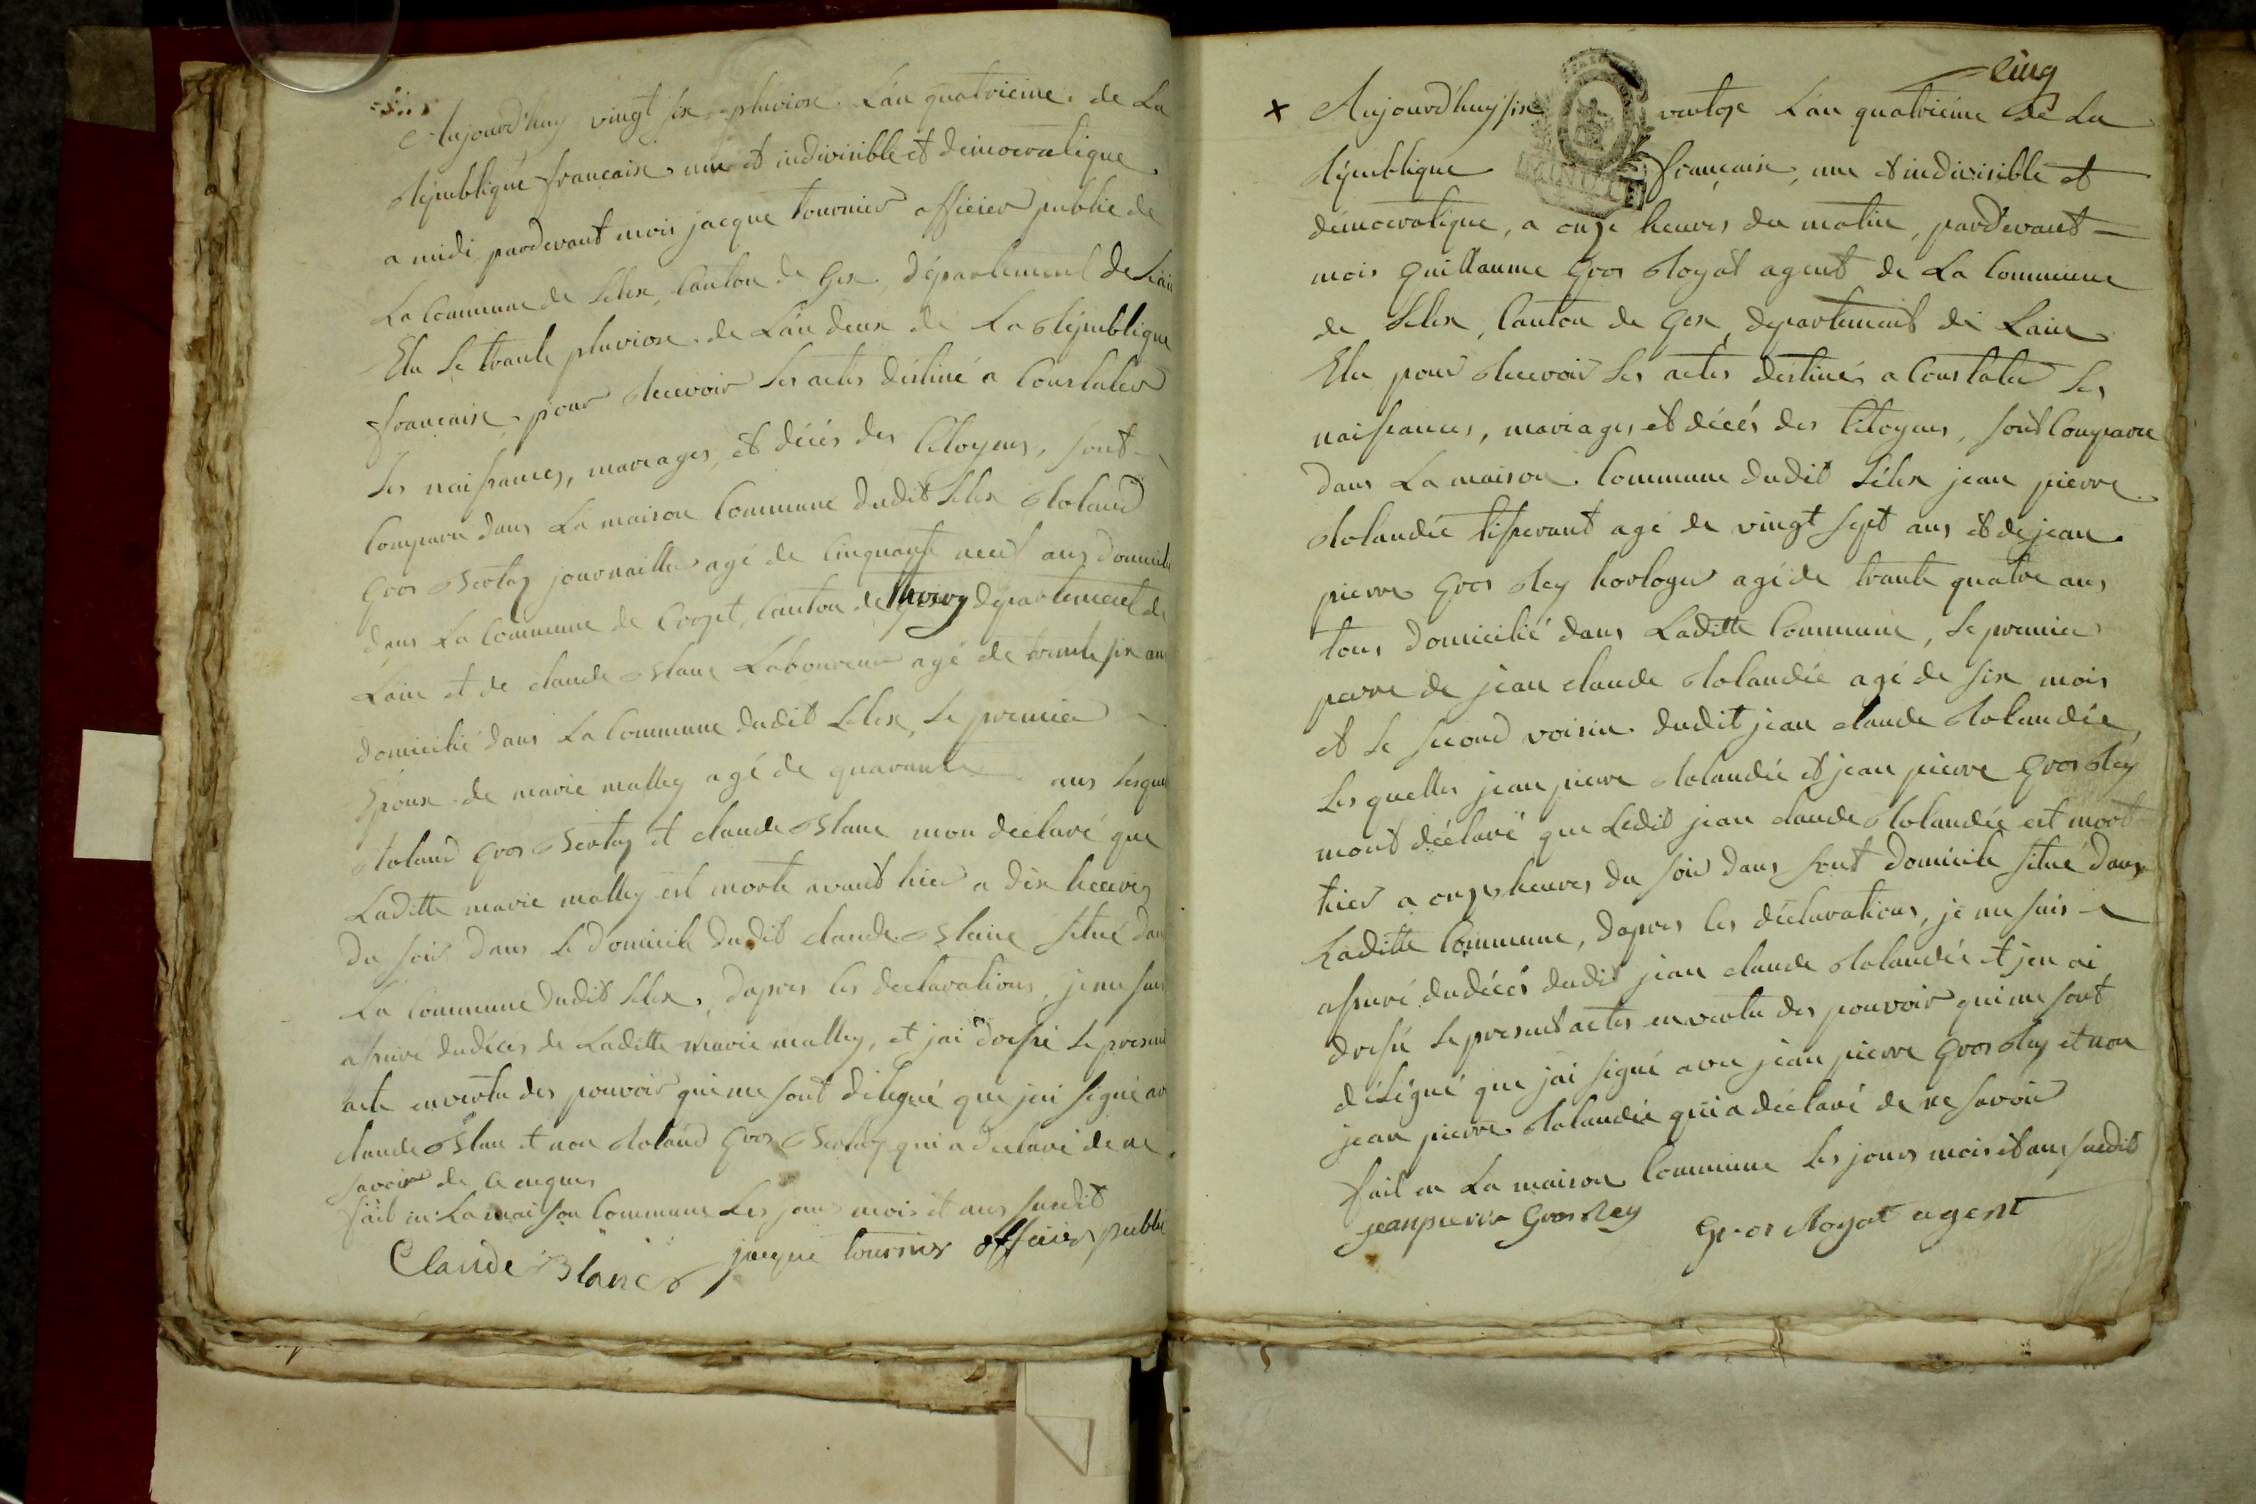 Aujourd'huy vingt six pluviose L'an quatrieme de La
Republique francaise une et indivisible et democratique
a midi pardevant mois jacque tournier officier public de
La Commune de Lelex, Canton de Gex, département de L'ain
Elu Le trante pluviose de L'an deux de La République
francaise pour Recevoir Les actes destiné a Constater
Les naissances, mariages, et décés des Citoyens, sont
Comparu dans La maison Commune dudit Lelex Roland
Gros Bertoz journaillier agé de Cinquante neuf ans domicilié
dans La Commune de Crozet, Canton de thoiry département de
Lain et de claude Blanc Laboureur agé de trante six ans
domicilié dans La Commune dudit Lelex, Le premier
Epoux de marie malley agé de quarante ans Lesquel
Roland Gros Bertoz et claude Blanc mon déclaré que
Laditte marie malley est morte avant hier a dix heures
du soir dans Le domicile dudit claude Blanc situé dans
La Commune dudit Lelex, dapres les declarations, je me suis
assuré du déces de Laditte marie malley, et jai dressé Le présent
acte en vertu des pouvoir qui me sont délegué que jai signé avec
claude Blanc et non Roland Gros Bertoz qui a déclaré de ne
savoir de ce enquis
fait en La maison Commune Les jours mois et ans susdit
Claude Blanc jacque tournier officier public
cinq
x Aujourd'huy six ventose L'an quatrieme de La
République française, une et indivisible et
démocratique, a onze heures du matin, pardevant
mois Guillaume Gros Royat agent de La Commune
de Lelex, Canton de Gex, departement de Lain
Elu pour Recevoir Les actes destinés a Constater Les
naissances, mariages et décés des Citoyens, sont Comparu
dans La maison Commune dudit Lélex jean pierre
Rolandée tisserant agé de vingt sept ans et de jean
pierre Gros Rey horloger agé de trante quatre ans
tous domicilié dans Laditte Commune, Le premier
perre de jean claude Rolandée agé de six mois
et Le second voisin dudit jean claude Rolandée,
Les quelles jean pierre Rolandée et jean pierre Gros Rey
mont déclaré que Ledit jean claude Rolandée est mort
hier a onze heures du soir dans sont domicile situé dans
Laditte Commune, dapres les déclarations, je me suis
assuré du décés dudit jean claude Rolandée et jen ai
dressé Le present actes en vertu des pouvoir qui me sont
délégué que jai signé avec jean pierre Gros Rey et non
jean pierre Rolandée qui a déclaré de ne savoir
fait en La maison Commune Les jours mois et ans susdit
jean pierre Gros Rey Gros Royat agent